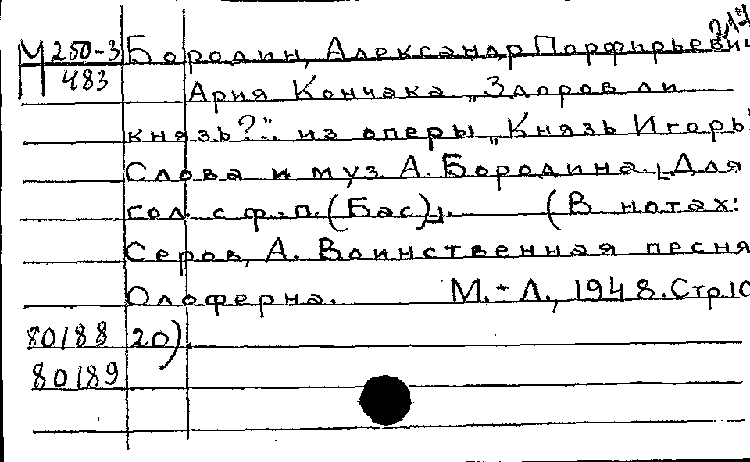 217
М 250-3 Бородин, Александр Порфирьевич
483
Ария Кончака „Здоров ли
князь?". из оперы „Князь Игорь"
Слова и муз. А. Бородина. [Для
гол. с ф.-п. (Бас)]. (В нотах:
Серов, А. Воинственная песня
Олоферна. М.-Л., 1948. Стр. 10
80188 20).
80189